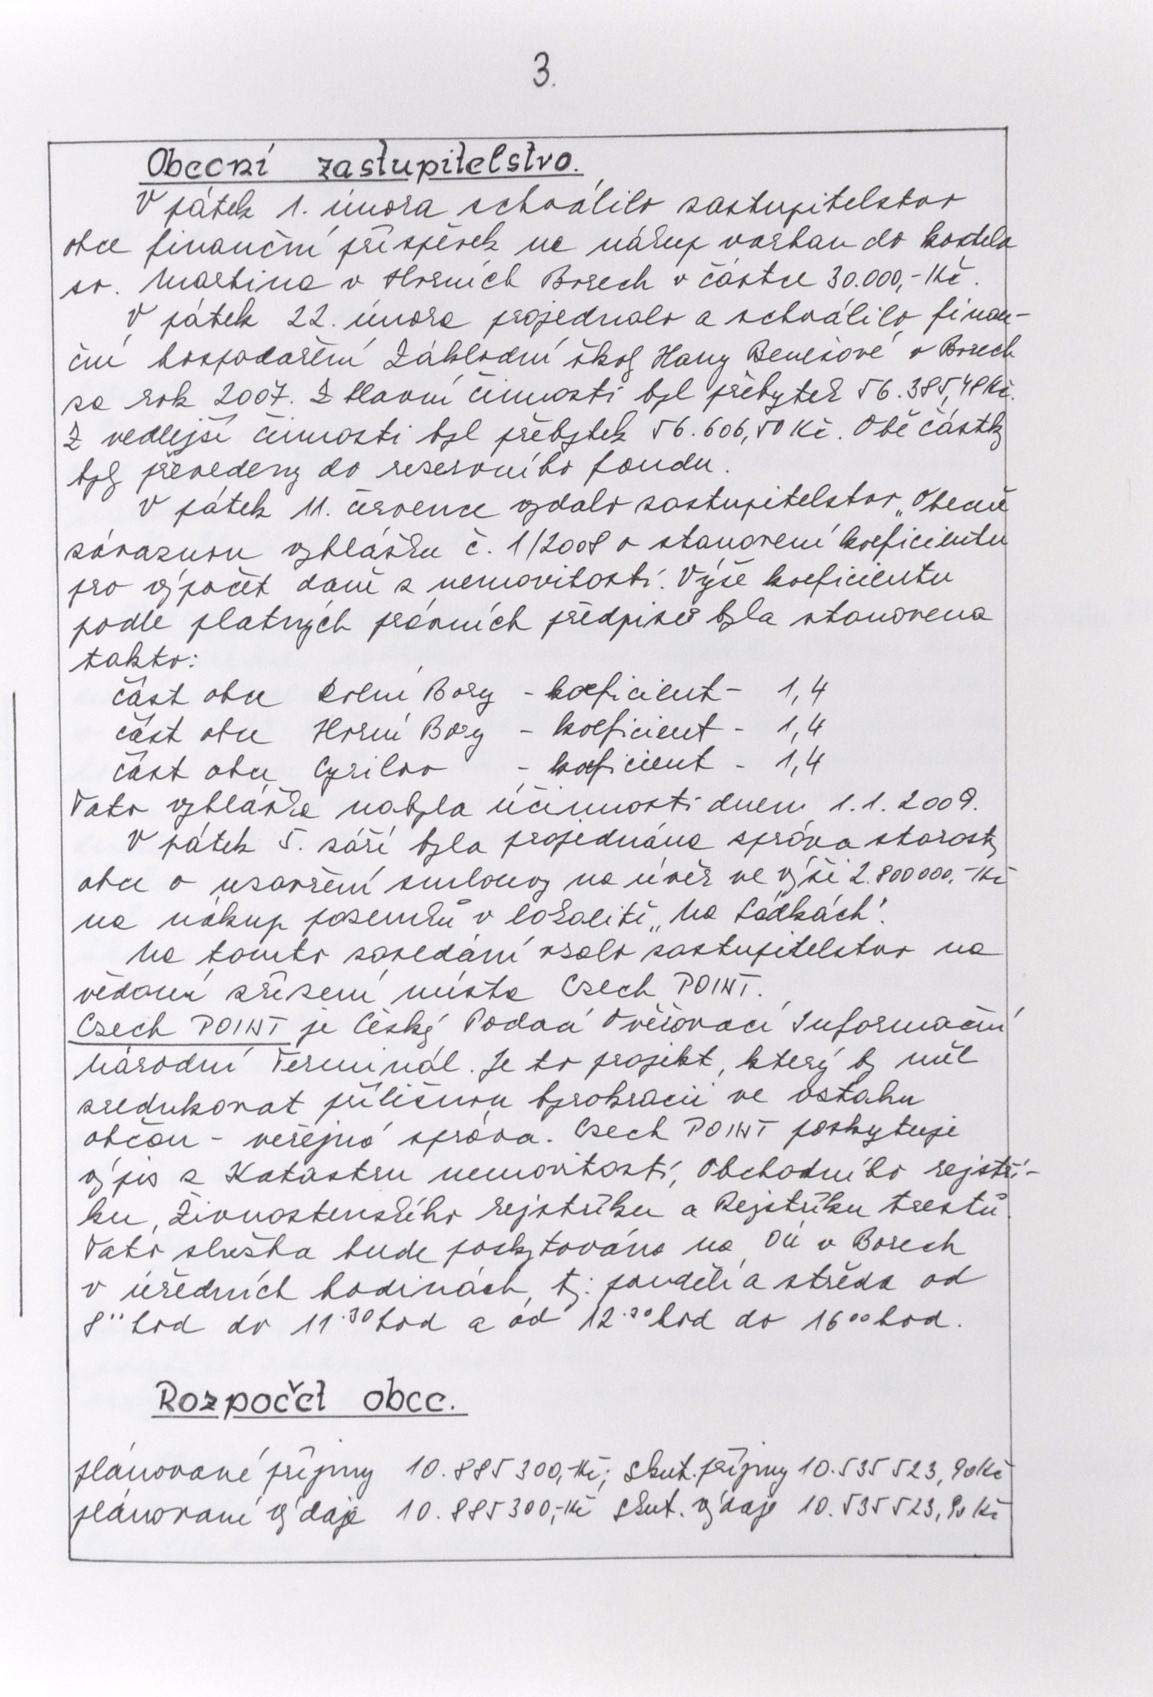 3.
Obecní zastupitelstvo.
V pátek 1. února schválilo zastupitelstvo
obce finanční příspěvek na nákup varhan do kostela
sv. Martina v Horních Borech v částce 30.000,- Kč.
V pátek 22. února projednalo a schválilo finan-
ční hospodaření Základní školy Hany Benešové v Borech
za rok 2007. Z hlavní činnosti byl přebytek 56.385,48 Kč.
Z vedlejší činnosti byl přebytek 56.606,50 Kč. Obě částky
byly převedeny do rezervního fondu.
V pátek 11. července vydalo zastupitelstvo „Obecně
závaznou vyhlášku č. 1/2008 o stanovení koeficientu
pro výpočet daně z nemovitostí. Výše koeficientu
podle platných právních předpisů byla stanovena
takto:
část obce Dolní Bory - koeficient - 1,4
část obce Horní Bory - koeficient - 1,4
část obce Cyrilov - koeficient - 1,4
Tato vyhláška nabyla účinnosti dnem 1.1.2009.
V pátek 5. září byla projednána zpráva starosty
obce o uzavření smlouvy na úvěr ve výši 2.800000,- Kč
na nákup pozemků v lokalitě „Na Sádkách“.
Na tomto zasedání vzalo zastupitelstvo na
vědomí zřízení místa Czech POINT.
Czech POINT je Český Podací Ověřovací Informační
Národní Terminál. Je to projekt, který by měl
zredukovat přílišnou byrokracii ve vztahu
občan - veřejná správa. Czech POINT poskytuje
výpis z Katastru nemovitostí, Obchodního rejstří-
ku, Živnostenského rejstříku a Rejstříku trestů.
Tato služba bude poskytována na OÚ v Borech
v úředních hodinách, tj: pondělí a středa od
8°° hod do 11.30 hod a od 12.30 hod do 16 00 hod.
Rozpočet obce.
plánované příjmy 10.885300,- Kč; skut. příjmy 10.535523,90 Kč
plánovaní výdaje 10.885300,- Kč skut. výdaje 10.535523,90 Kč